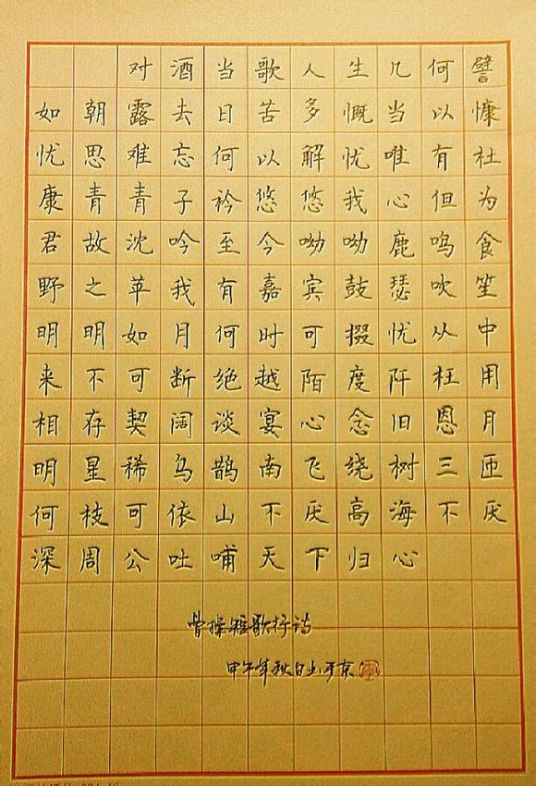 对酒当歌人生几何譬
如朝露去日苦多慨当以慷
忧思难忘何以解忧唯有杜
康青青子衿悠悠我心但为
君故沈吟至今呦呦鹿鸣食
野之苹我有嘉宾鼓瑟吹笙
明明如月何时可掇忧从中
来不可断绝越陌度阡枉用
相存契阔谈宴心念旧恩月
明星稀乌鹊南飞绕树三匝
何枝可依山不厌高海不厌
深周公吐哺天下归心
曹操短歌行诗
甲午年秋日于京